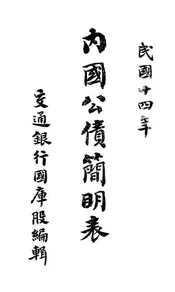 民國廿四年
內國公債簡明表
交通銀行國庫股編輯